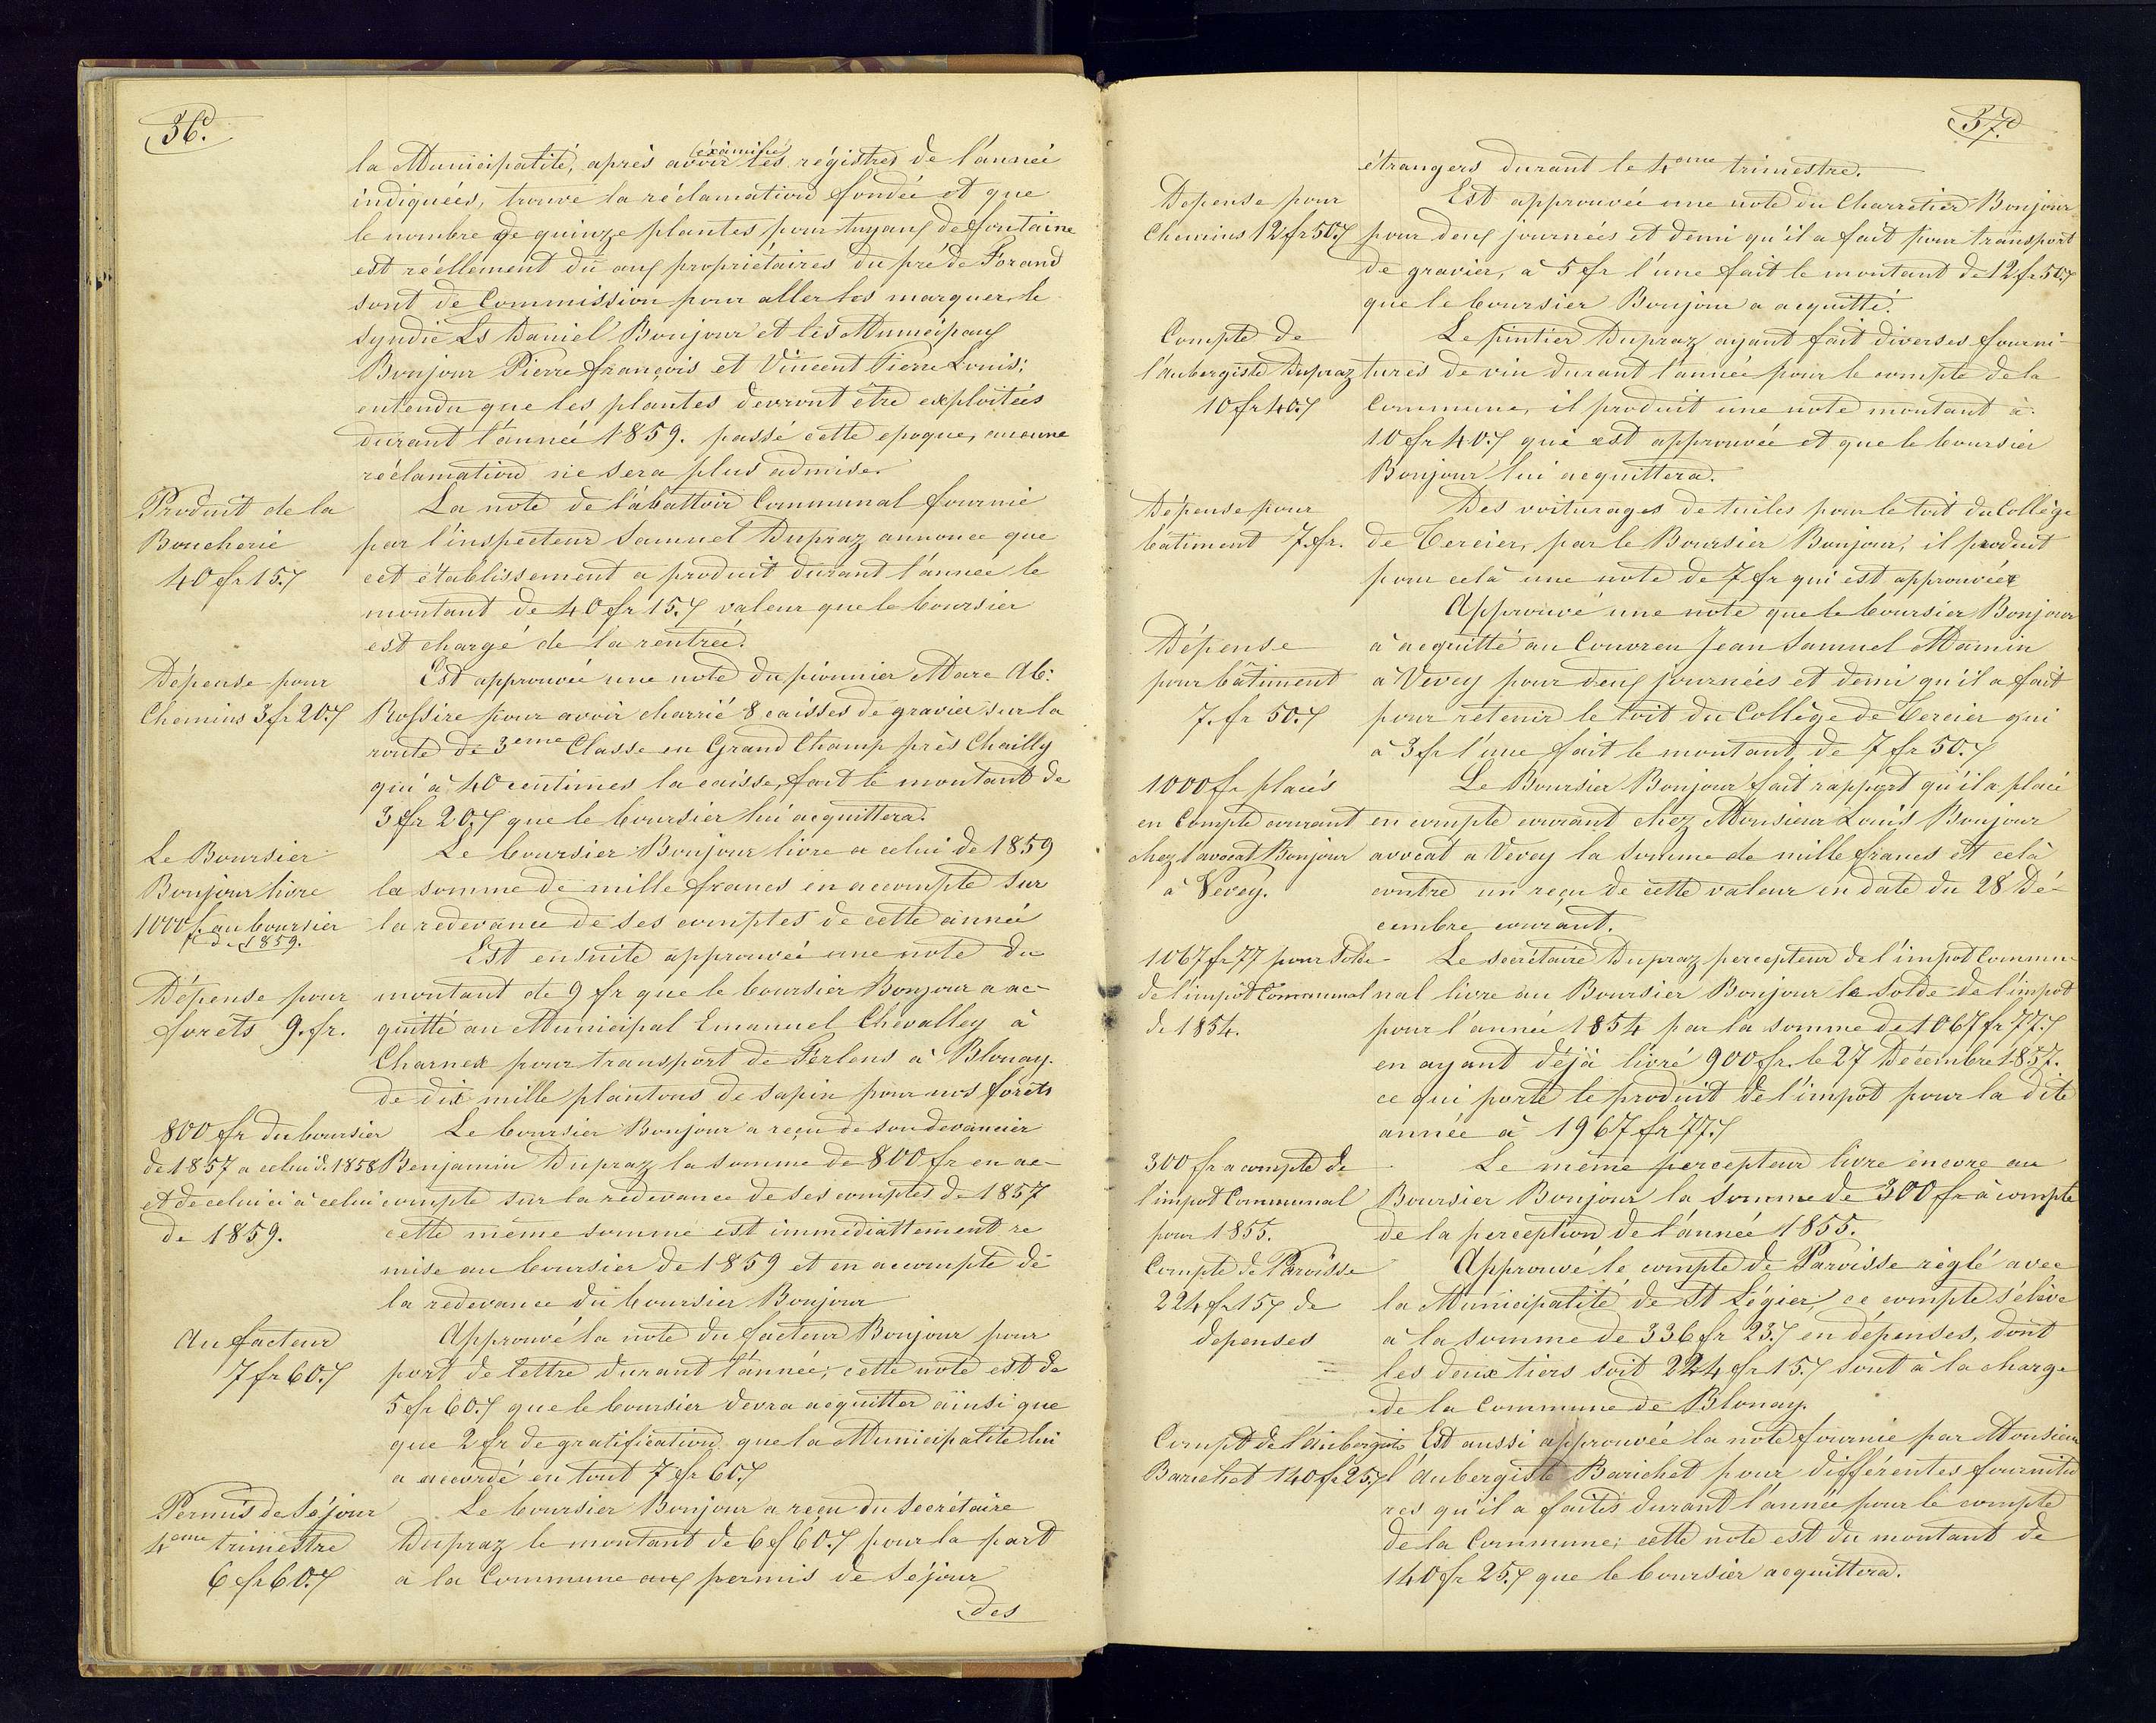 36.
la Municipalité, après avoir examiné les régistres de l'année
indiquées, trouve la réclamation fondée et que
le nombre de quinze plantes pour tuyaux de fontaine
est réellement dû aux propriétaires du pré de Forand
sont de Commission pour aller les marquer, le
syndic Ls Daniel Bonjour et les Municipaux
Bonjour Pierre françois et Vincent Pierre Louis;
entendu que les plantes devront être exploitées
durant l'année 1859. passé cette epoque, aucune
réclamation ne sera plus admise.
Produit de la
Boucherie
40 fr 15.
La note de l'abattoir Communal fournie
par l'inspecteur Samuel Dupraz annonce que
cet établissement a produit durant l'année le
montant de 40 fr 15. valeur que le boursier
est chargé de la rentrée.
Dépense pour
Chemins 3 fr 20.
Est approuvée une note du pionnier Marc Ab:
Rossire pour avoir charrié 8 caisses de gravier sur la
route de 3eme Classe en Grand Champ près Chailly
qui à 40 centimes la caisse, fait le montant de
3 fr 20. que le boursier lui acquittera.
Le Boursier
Bonjour livre
1000 f. au boursier
de 1859.
Le boursier Bonjour livre a celui de 1859
la somme de mille francs en accompte sur
la redevance de ses comptes de cette année
Dépense pour
forets 9. fr.
Est ensuite approuvée une note du
montant de 9 fr que le boursier Bonjour a ac-
quitté au Municipal Emanuel Chevalley à
Charnex pour transport de Ferlens à Blonay.
de dix mille plantons de sapin pour nos forêts
800 fr du boursier
de 1857 a celui de 1858
et de celui ci à celui
de 1859.
Le boursier Bonjour a reçu de son devancier
Benjamin Dupraz la somme de 800 fr en ac-
compte sur la redevance de ses comptes de 1857
cette même somme est immédiattement re
mise au boursier de 1859 et en accompte de
la redevance du boursier Bonjour
Au facteur
7 fr 60.
Approuvé la note du facteur Bonjour pour
port de lettre durant l'année; cette note est de
5 fr 60. que le boursier devra acquitter ainsi que
que 2 fr de gratification que la Municipalité lui
a accordé en tout 7 fr 60.
Permis de Séjour
4eme trimestre
6 fr 60.
Le boursier Bonjour a reçu du Secrétaire
Dupraz le montant de 6 f 60. pour la part
a la Commune aux permis de Séjour
des
37.
étrangers durant le 4eme trimestre.
Dépense pour
Chemins 12 fr 50.
Est approuvée une note du Charretier Bonjour
pour deux journées et demi qu'il a fait pour transport
de gravier, à 5 fr l'une fait le montant de 12 fr 50.
que le boursier Bonjour a acquitté.
Compte de
l'aubergiste Dupraz
10 fr 40.
Le pintier Dupraz ayant fait diverses fourni-
tures de vin durant l'année pour le compte de la
Commune, il produit une note montant à
10 fr 40. qui est approuvée et que le boursier
Bonjour lui acquittera.
Dépense pour
batiment 7. fr.
Des voiturages de tuiles pour le toit du Collège
de Tercier, par le Boursier Bonjour, il produit
pour celà une note de 7 fr qui est approuvée
Dépense
pour bâtiment
7. fr 50.
Approuvé une note que le boursier Bonjour
a acquitté au Couvreu Jean Samuel Mamin
à Vevey pour deux journées et demi qu'il a fait
pour retenir le toit du Collège de Tercier qui
à 3 fr l'une fait le montant de 7 fr 50.
1000 fr placés
en Compte courant
chez l'avocat Bonjour
à Vevey.
Le Boursier Bonjour fait rapport qu'il a placé
en compte courant chez Monsieur Louis Bonjour
avocat a Vevey la somme de mille francs et celà
contre un reçu de cette valeur en date du 28 Dé-
cembre courant.
1067 fr 77 pour Solde
de l'impôt Communal
de 1854.
Le secrétaire Dupraz percepteur de l'impot Commu-
nal livre au Boursier Bonjour le solde de l'impot
pour l'année 1854 par la somme de 1067 fr 77.
en ayant déjà livré 900 fr. le 27 Décembre 1857.
ce qui porte le produit de l'impôt pour la dite
année à 1967 fr 77.
300 fr a compte de
l'impot Communal
pour 1855.
Le même percepteur livre encore au
Boursier Bonjour la somme de 300 fr à compte
de la perception de l'année 1855.
Compte de Paroisse
224 fr 15 de
depenses
Approuvé le compte de Paroisse règlé avec
la Municipalité de St Légier, ce compte s'élève
à la somme de 336 fr 23. en dépenses, dont
les deux tiers soit 224 fr 15. sont à la charge
de la Commune de Blonay.
Compte de l'Aubergiste
Barichet 140 fr 25.
Est aussi approuvée la note fournie par Monsieur
l'Aubergiste Barichet pour différentes fournitu
res qu'il a faites durant l'année pour le compte
de la Commune; cette note est du montant de
140 fr 25. que le boursier acquittera.